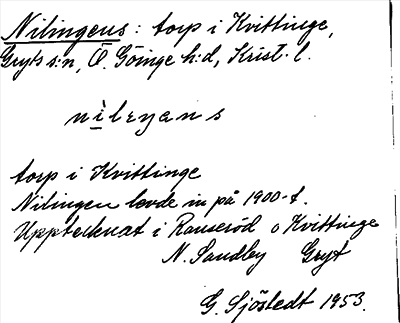 Nilingens: torp i Kvittinge,
Gryts s:n, Ö. Göinge h:d, Krist. l.
nìlɛŋans
torp i Kvittinge
Nilingen levde in på 1900-t.
Upptecknat i Ranseröd o Kvittinge
N. Sandby Gryt
G. Sjöstedt 1953.